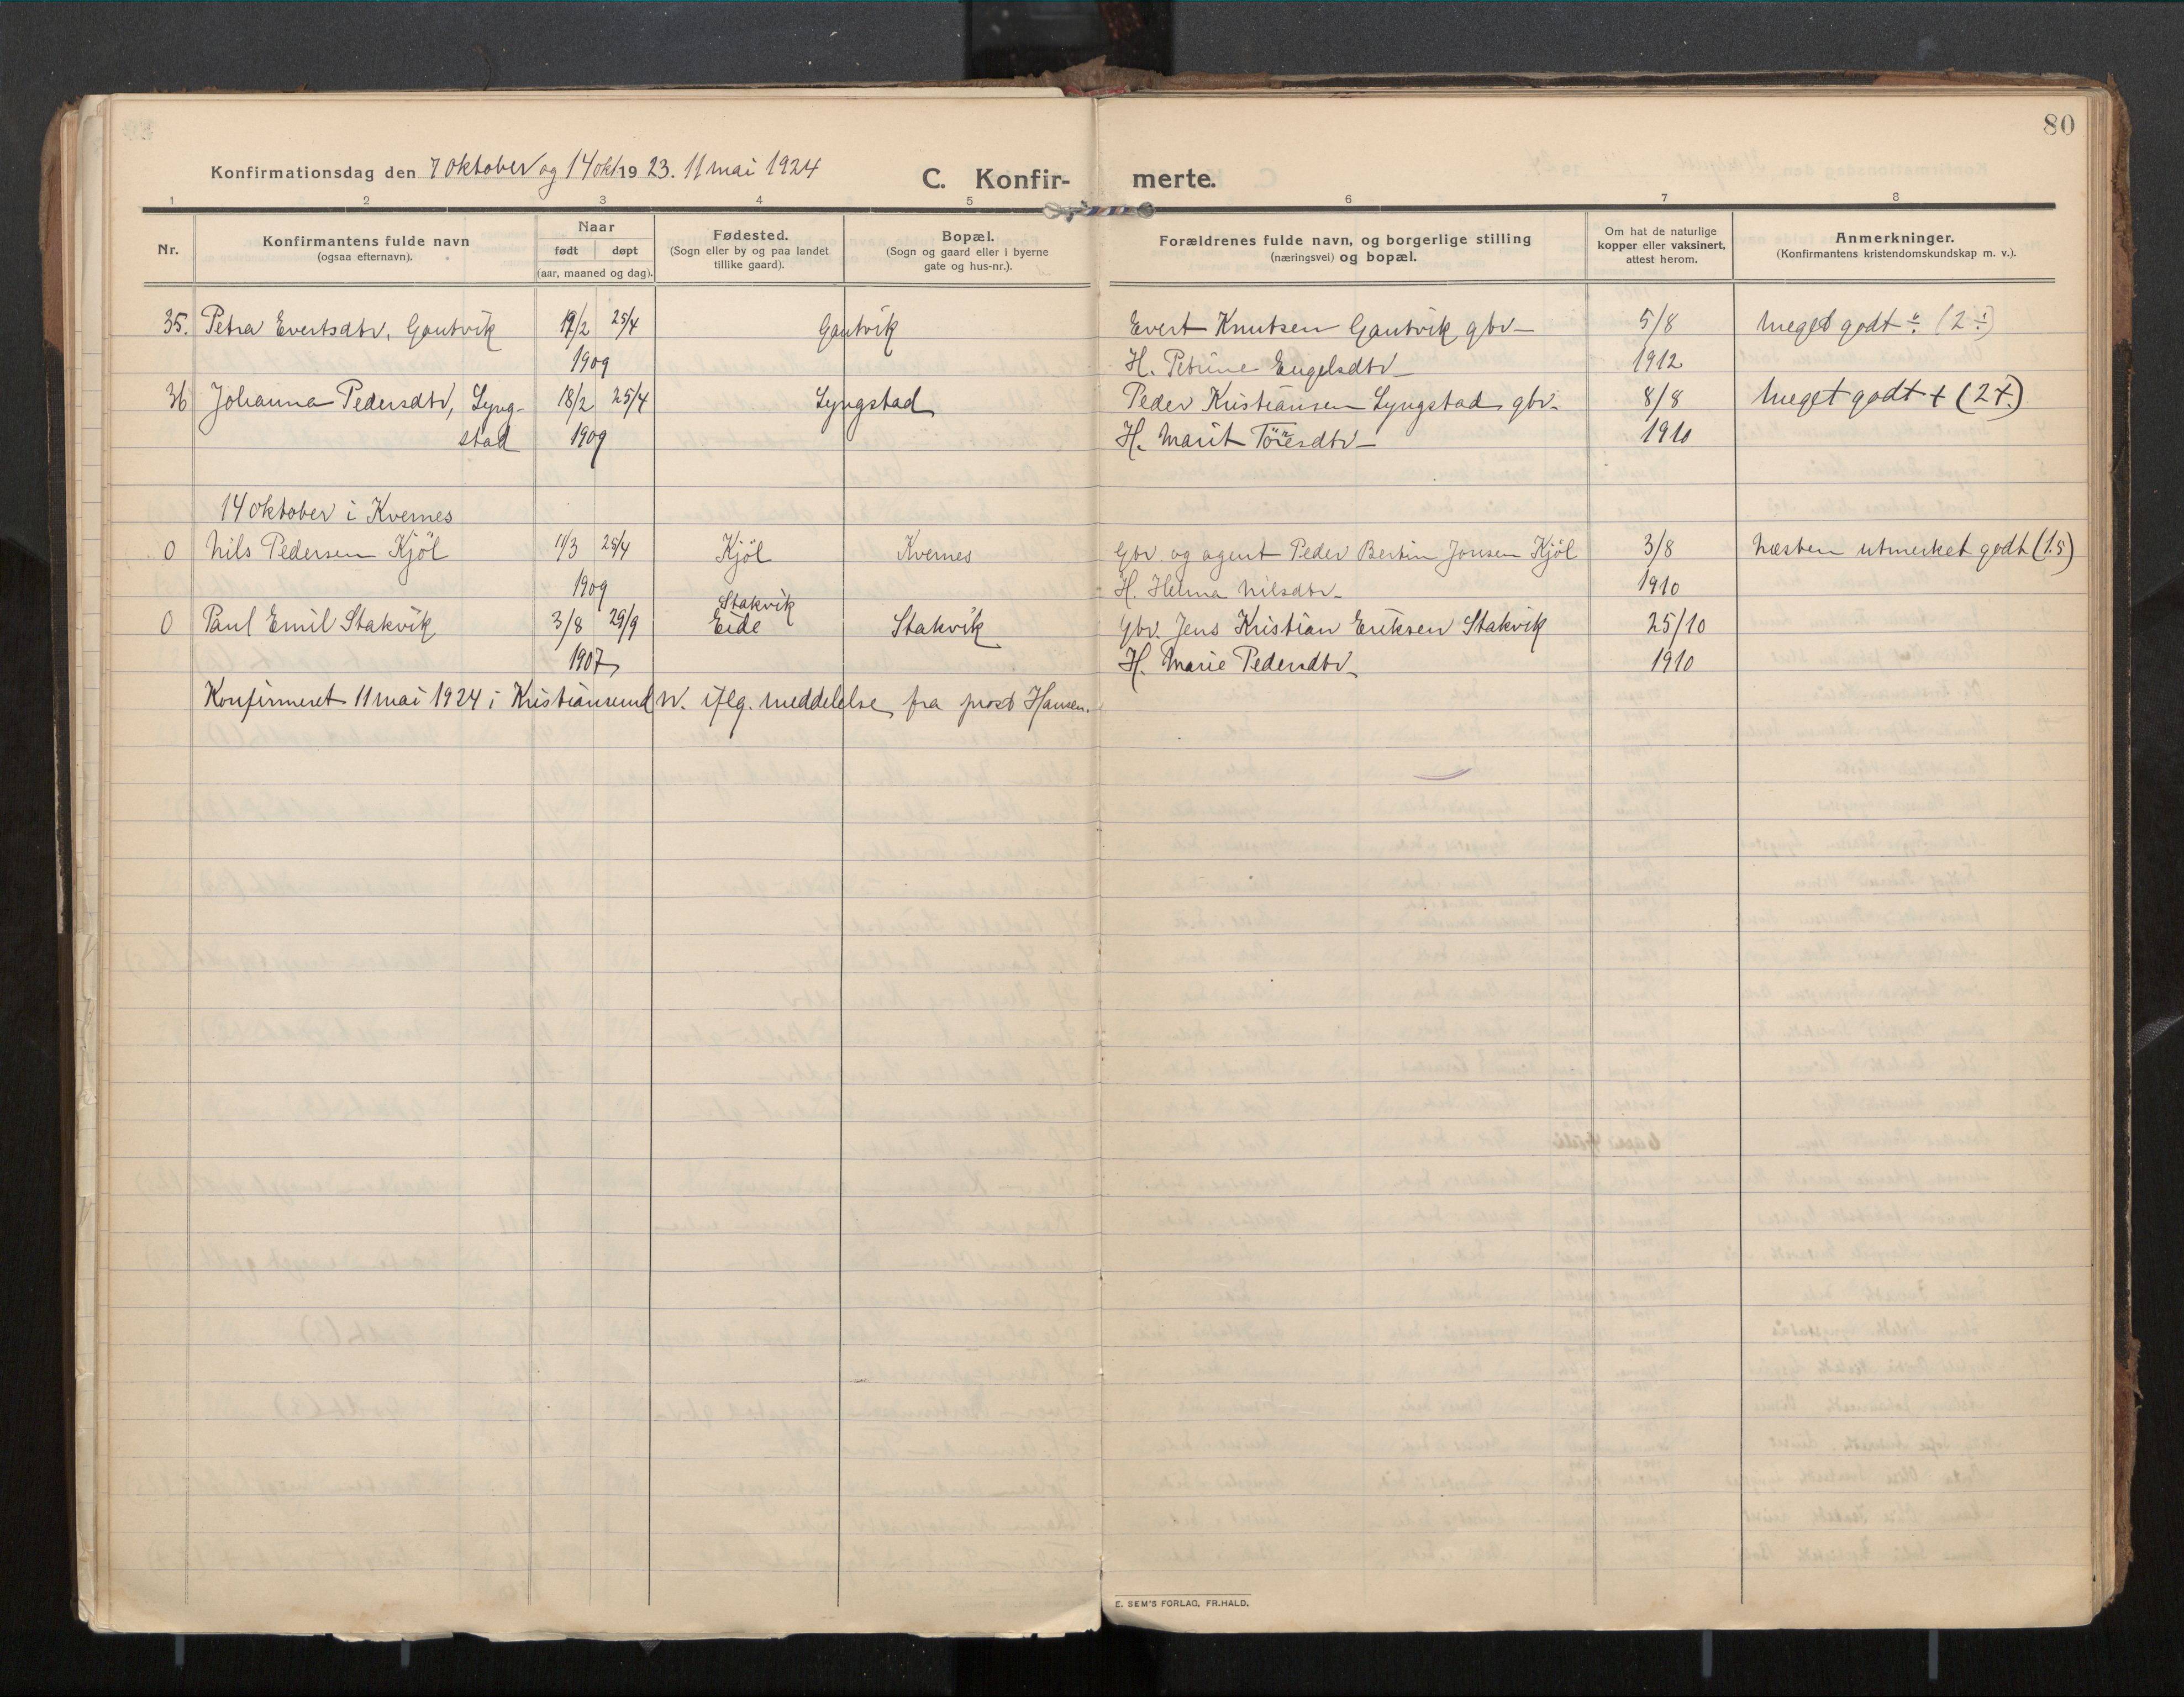 80
Konfirmationsdag den 7 oktober og 14 okt. 1923. 11 mai 1924
C. Konfir- merte.
1 2 3 4 5 6 7 8
Nr.
Konfirmantens fulde navn
(ogsaa efternavn).
Naar
født døpt
(aar, maaned og dag).
Fødested.
(Sogn eller by og paa landet
tillike gaard).
Bopæl.
(Sogn og gaard eller i byerne
gate og hus-nr.).
Forældrenes fulde navn, og borgerlige stilling
(næringsvei) og bopæl.
Om hat de naturlige
kopper eller vaksinert,
attest herom.
Anmerkninger.
(Konfirmantens kristendomskundskap m. v.).
35. Petra Evertsdtr, Gautvik 17/2 25/4 Gautvik Evert Knutsen Gautvik gbr. 5/8 Meget godt ÷ (2÷)
1909 H. Petrine Engelsdtr 1912
36 Johanna Pedersdtr, Lyng- 18/2 25/4 Lyngstad Peder Kristiansen Lyngstad gbr. 8/8 Meget godt + (2+.)
stad 1909 H. Marit Töresdtr 1910
14 oktober i Kvernes
0 Nils Pedersen Kjöl 11/3 25/4 Kjöl Kvernes Gbr. og agent Peder Bertin Jonsen Kjöl 3/8 Næsten utmerket godt (1.5)
1909 H. Helma Nilsdtr. 1910
Stakvik
0 Paul Emil Stakvik 3/8 29/9 Eide Stakvik Gbr. Jens Kristian Eriksen Stakvik 25/10
1907 H. Marie Pedersdtr 1910
Konfirmeret 11 mai 1924 i Kristiansund N. iflg. meddelelse fra prost Hansen.
E. SEM'S FORLAG, FR.HALD.